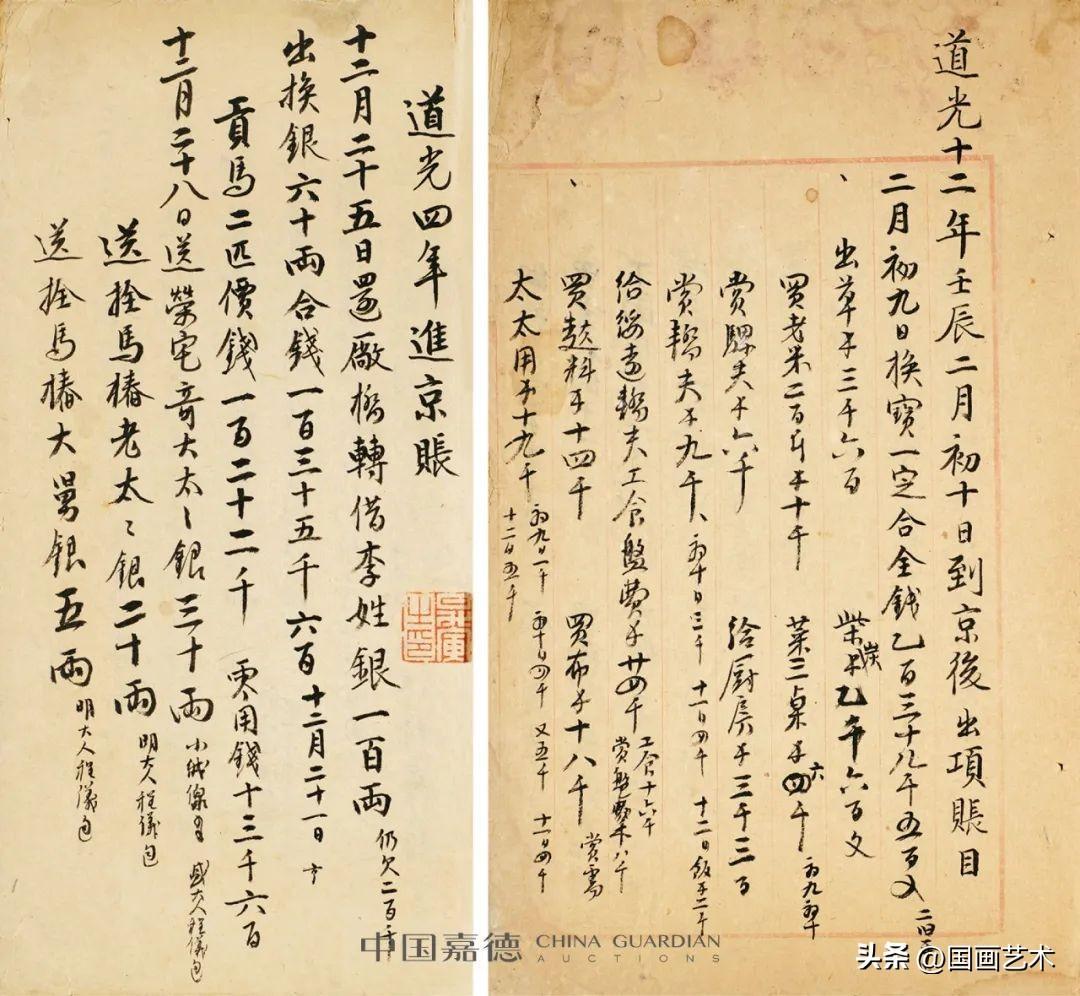 道光十二年壬辰二月初十日到京後出項賬目
二月初九日換寶一定合全錢乙百三十九千五百文
出草子三千六百
柴炭乙千六百文
買老米二百斤十千
菜三桌四六千
初九
賞騾夫六千
給厨房三千三百
賞轎夫九千
初十日三千
十一日四千
十二日飯二千
給綏遠轎夫工食盤費廿四千
工食十六千
賞盤費八千
買麩料十四千
買布十八千
賞需
太太用十九千
初九日一千
十二日五千
初十日四千
又五千
十一日四千
道光四年進京賬
十二月二十五日還厰橋轉借李姓銀一百兩
仍欠二百
出換銀六十兩合錢一百三十五千六百十二月二十一日
貢馬二匹價錢一百二十二千
零用錢十三千六百
十二月二十八日送榮宅奇大太銀三十兩
大人程儀包
送拴馬樁老太銀二十兩
明大人程儀包
送拴馬樁大舅銀五兩
明大人程儀包
中国嘉德 CHINA GUARDIAN
AUCTIONS
头条 @国画艺术